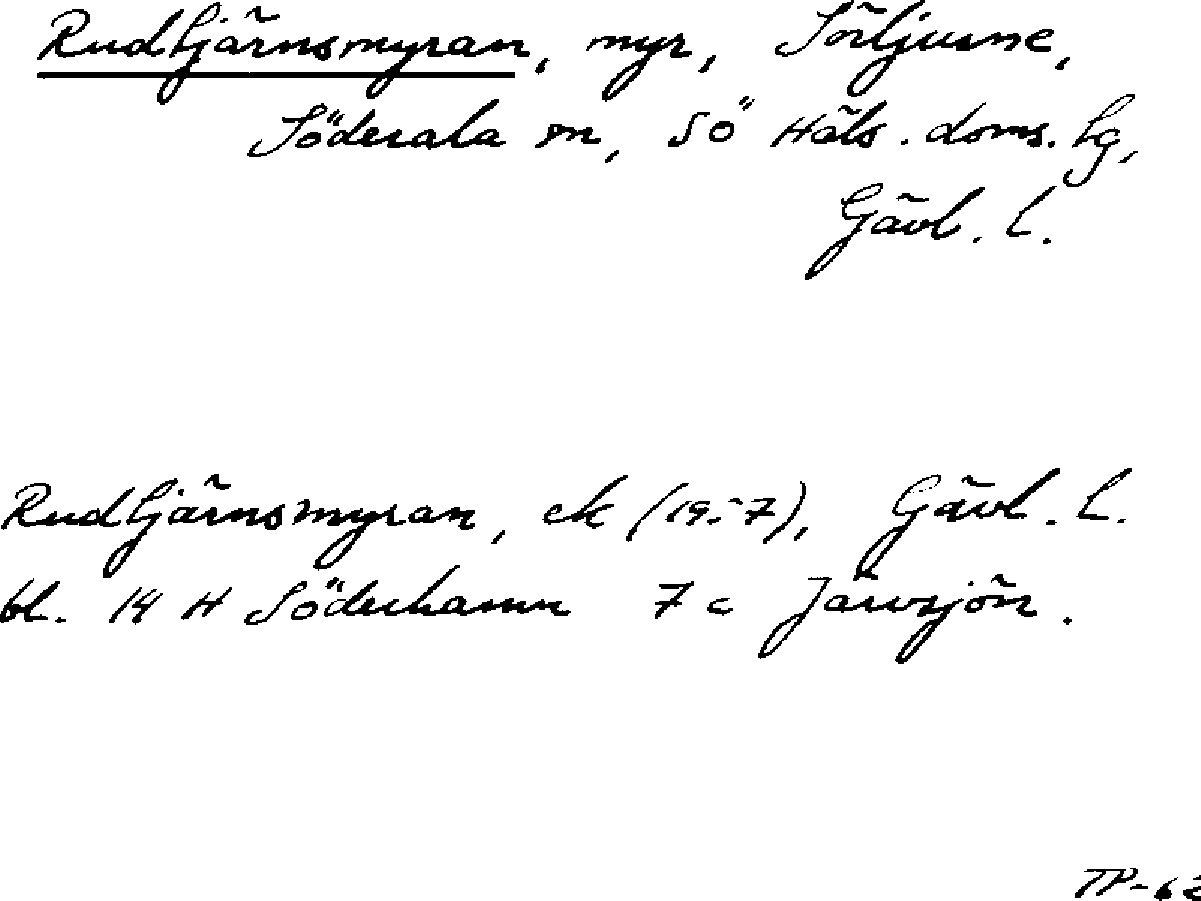 Rudtjärnsmyran, myr, Sörljusne,
Söderala sn, SÖ Häls. doms. lg,
Gävl. l.
Rudtjärnsmyran, ek (1957), Gävl. l.
bl. 14 H Söderhamn 7 c Järvsjön.
TP-62